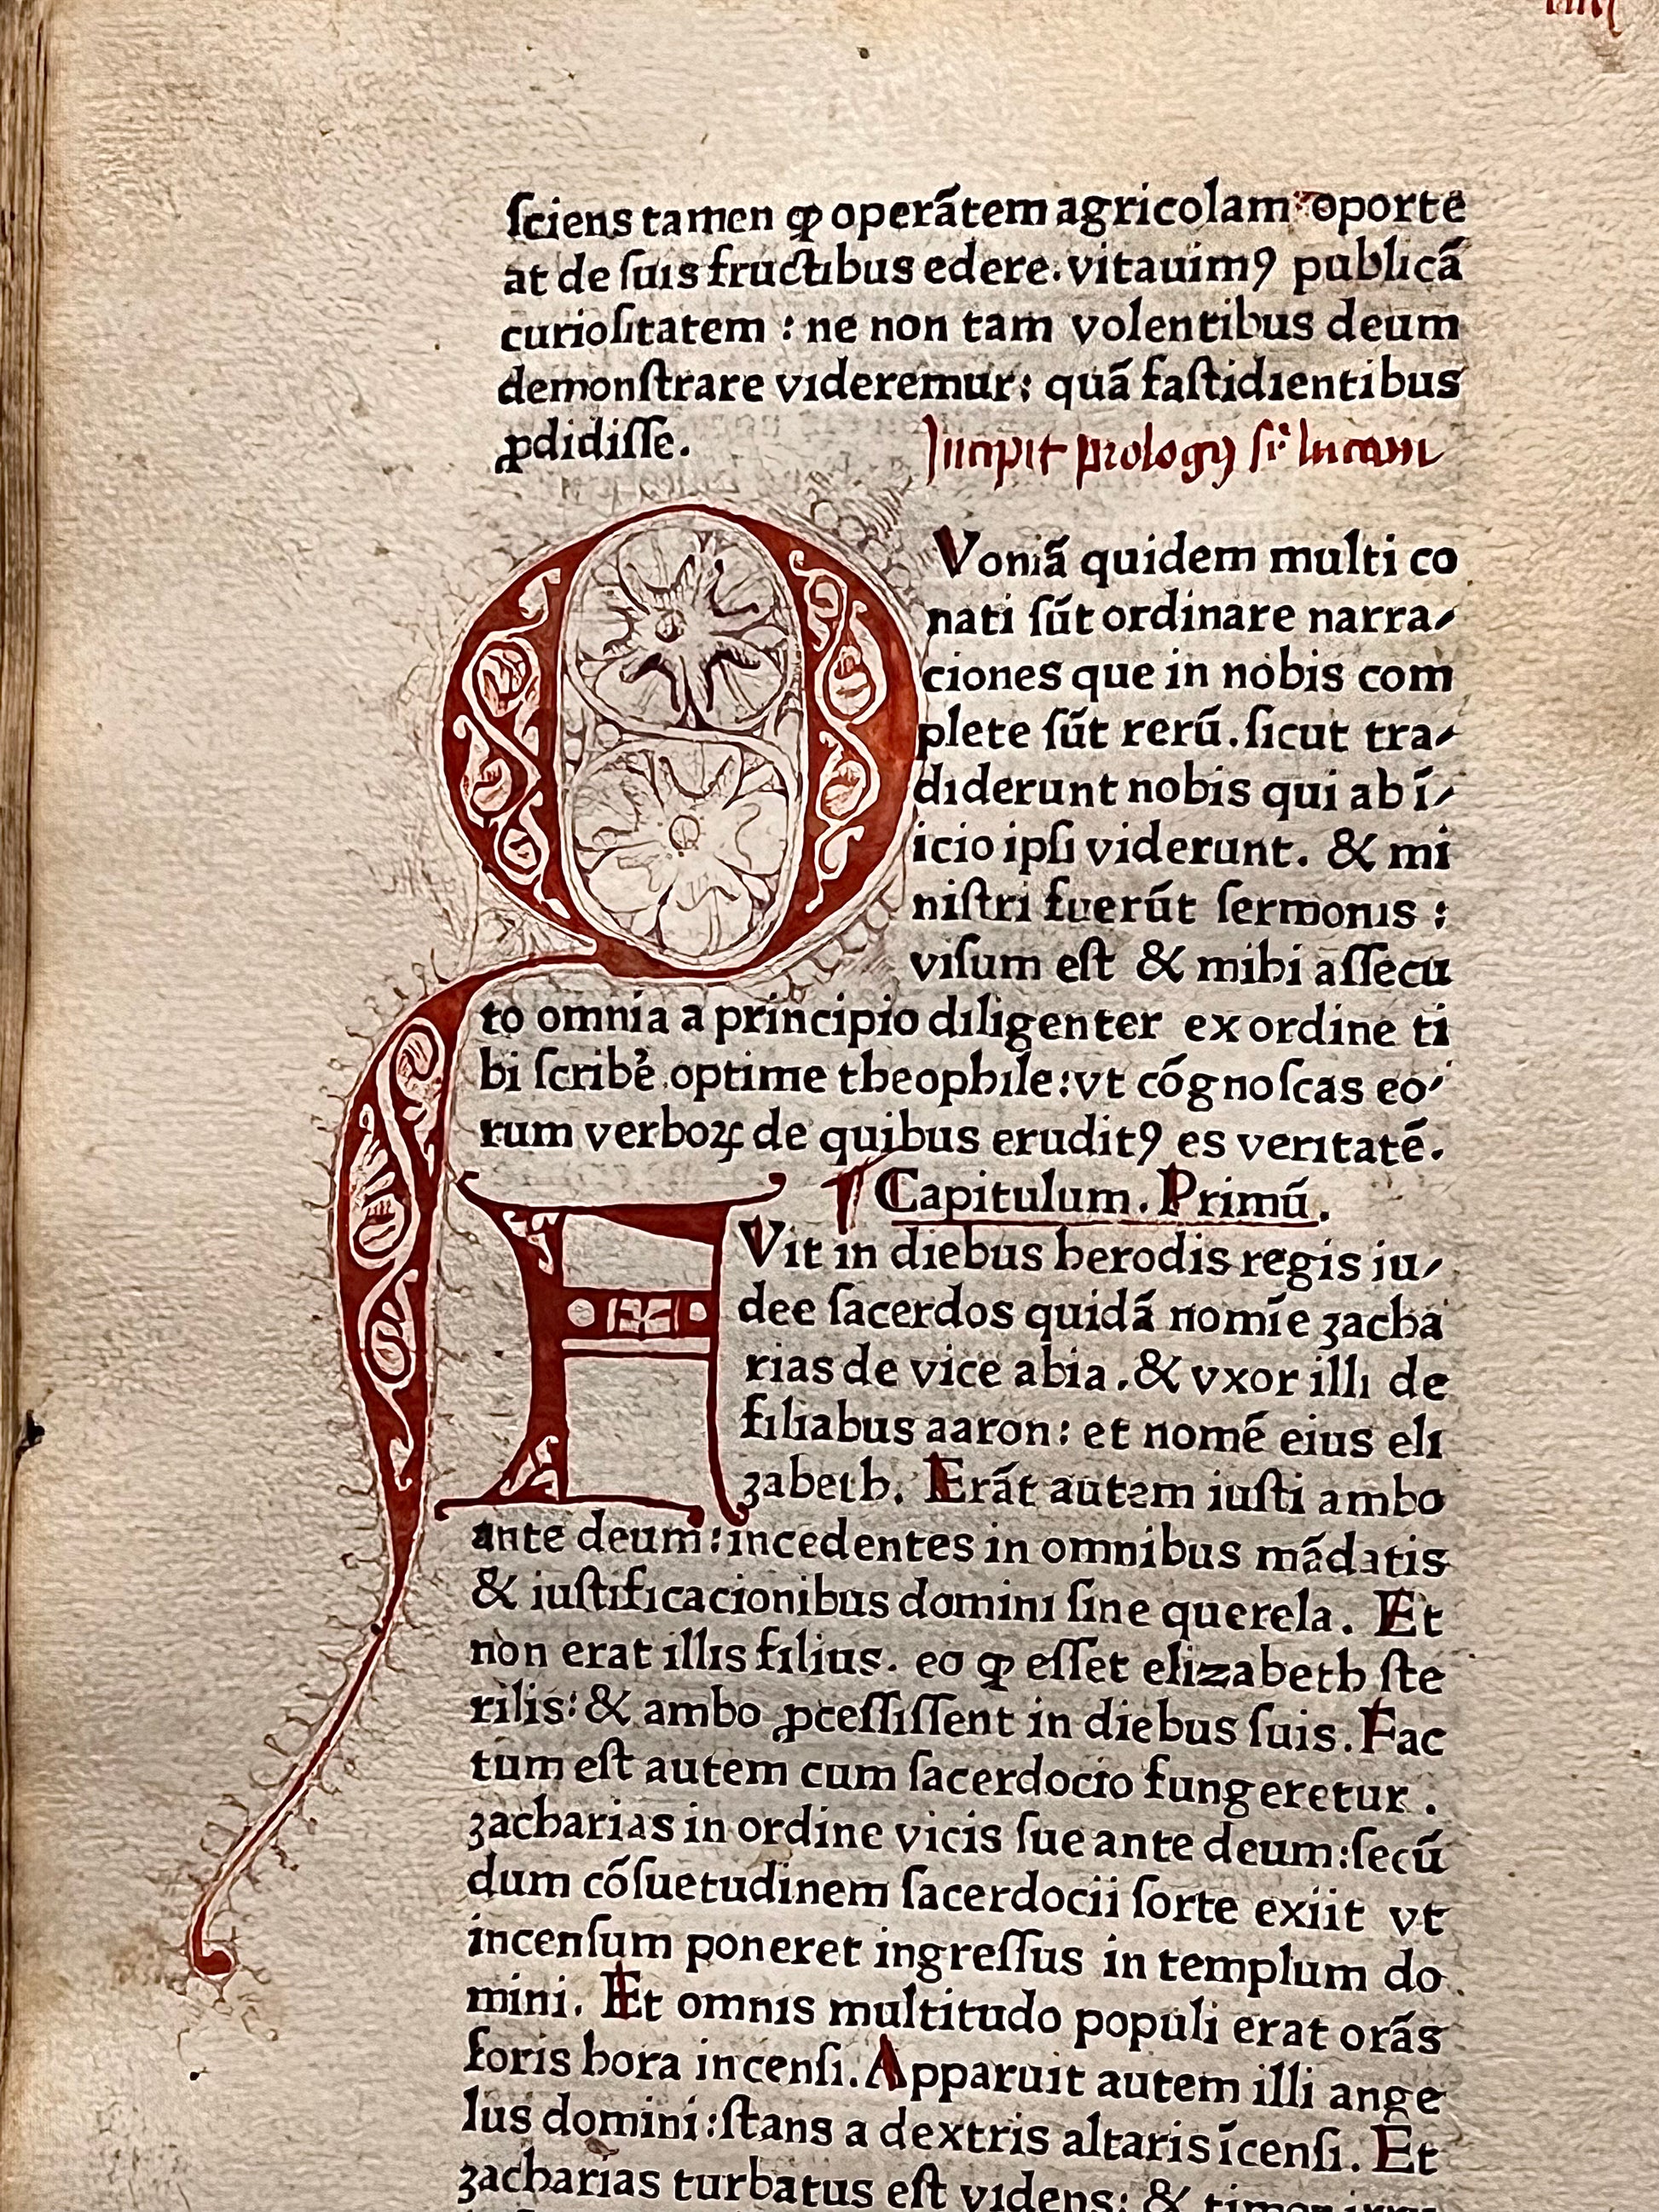 ſciens tamen ꝙ operãtem agricolam oporte
at de ſuis fructibus edere. vitauimꝰ publicã
curioſitatem : ne non tam volentibus deum
demonſtrare videremur: quã faſtidientibus
ꝓdidiſſe.
Incipit prologꝰ
Q Voniã quidem multi co
nati ſũt ordinare narra-
ciones que in nobis com
plete ſũt rerũ. ſicut tra-
diderunt nobis qui ab ĩ-
icio ipſi viderunt. & mi
niſtri fuerũt ſermonis :
viſum eſt & mihi aſſecu
to omnia a principio diligenter ex ordine ti
bi ſcribe᷑ optime theophile: vt cõgnoſcas eo-
rum verboꝝ de quibus eruditꝰ es veritatẽ.
¶ Capitulum. Primũ.
F Vit in diebus herodis regis iu-
dee ſacerdos quidã nomĩe zacha
rias de vice abia. & vxor illi de
filiabus aaron: et nomẽ eius eli
zabeth. Erãt autem iuſti ambo
ante deum: incedentes in omnibus mãdatis
& iuſtificacionibus domini ſine querela. Et
non erat illis filius. eo ꝙ eſſet elizabeth ſte
rilis: & ambo ꝓceſſiſſent in diebus ſuis. Fac
tum eſt autem cum ſacerdocio fungeretur.
zacharias in ordine vicis ſue ante deum: ſecũ
dum cõſuetudinem ſacerdocii ſorte exiit vt
incenſum poneret ingreſſus in templum do
mini. Et omnis multitudo populi erat orãs
foris hora incenſi. Apparuit autem illi ange
lus domini: ſtans a dextris altaris ĩcenſi. Et
zacharias turbatus eſt videns: &